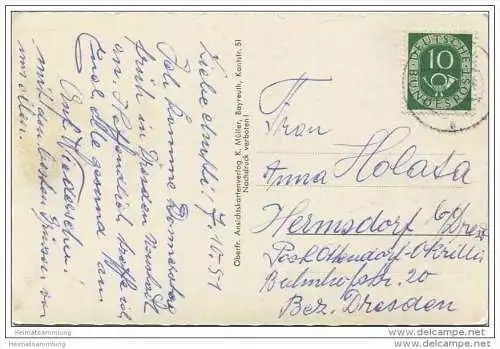 Liebe Mutti! 7.10.51
Ich komme Donnerstag
früh in Dresden Neustadt
an. Hoffentlich treffe ich
Euch alle gesund an
Auf Wiedersehn!
mit den besten Grüssen von
uns allen.
Oberfr. Ansichtskartenverlag K. Müller, Bayreuth, Kantstr. 51
Nachdruck verboten!
DEUTSCHE
BUNDESPOST
10
Frau
Anna Holata
Hermsdorf b/Dresd
Post Ottendorf-Okrilla
Bahnhofstr. 20
Bez. Dresden
Heimatsammlung
Heimatsammlung
www.delcampe.net